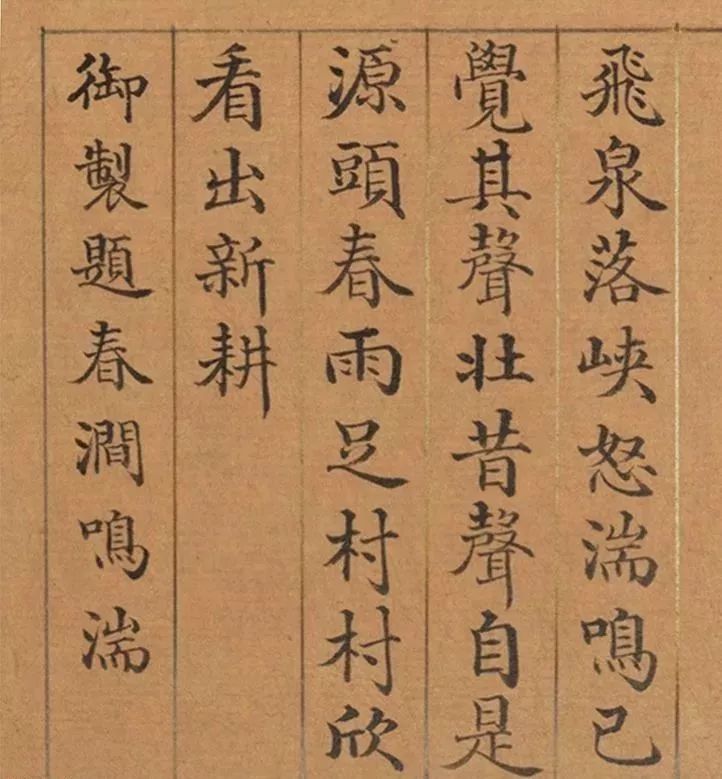 飛泉落峽怒湍鳴已
覺其聲壯昔聲自是
源頭春雨足村村欣
看出新耕
御製題春澗鳴湍